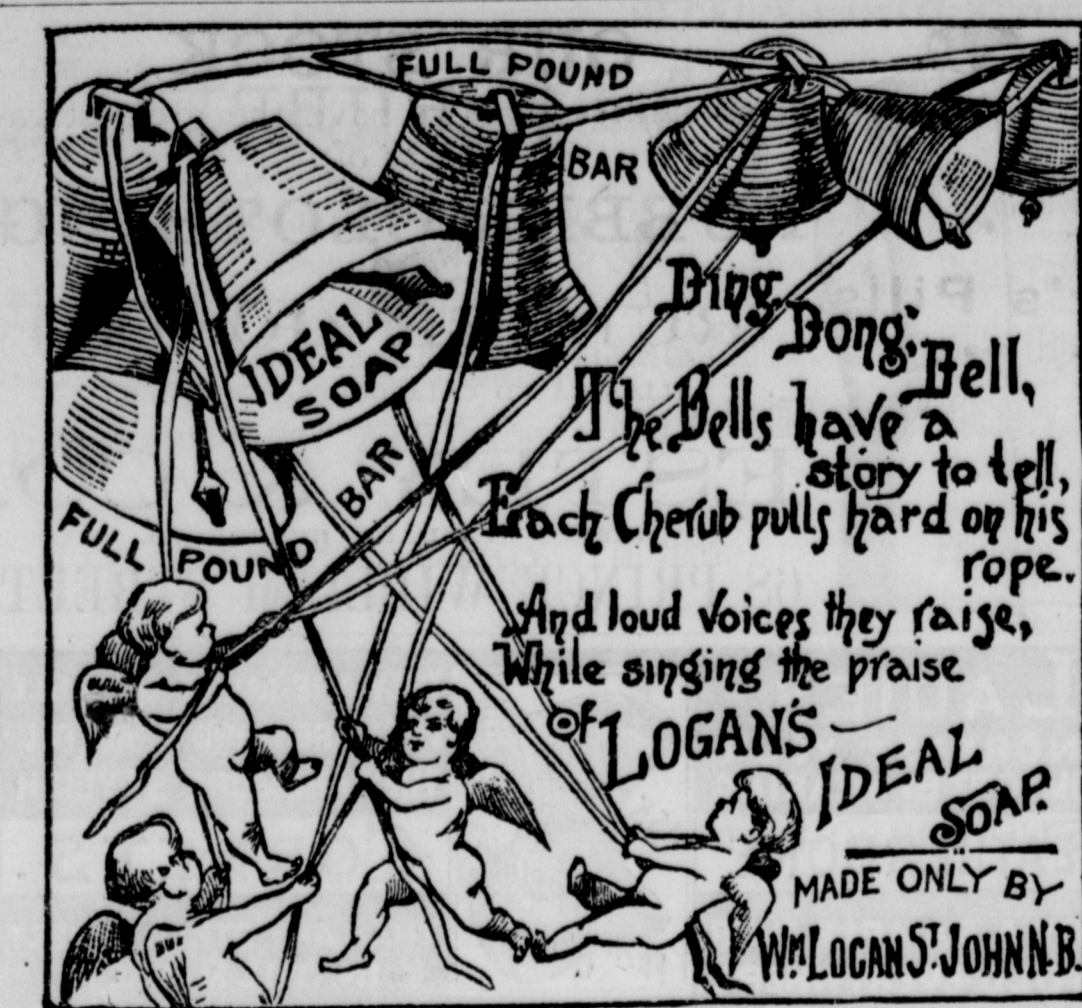 FULL POUND
BAR
IDEAL
SOAP
FULL POUND
BAR
Ding,
Dong,
Bell,
The Bells have a
story to tell,
Each Cherub pulls hard on his
rope.
And loud voices they raise,
While singing the praise
Of LOGAN'S
IDEAL
SOAP.
MADE ONLY BY
Wm LOGAN ST. JOHN N.B.